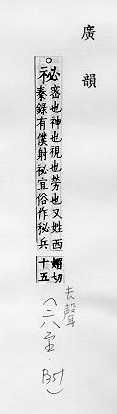 廣韻
○祕
密也神也視也勞也又姓西
秦錄有僕射祕宜俗作秘兵
媚切
十五
去聲
(六至.